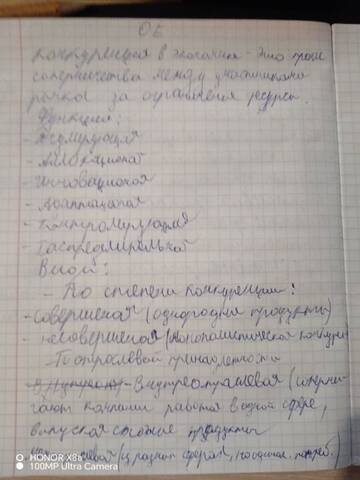 ОБ
Конкуренция в экономике - это проц
соперничества между участниками
рынка за ограничен ресурсы.
Функции:
- Регулирующая
- Аллокационая
- Инновационая
- Адаптационая
- Контролирующая
- Распределительной
Виды:
- По степени конкуренции:
- совершеная (однородные продукты)
- несовершеная (Монополистическая конкурен
По отраслевой принадлежности
Внутриотраслевая (
компании работая в одной сфере,
выпуская продукты
(из разных сферах,
HONOR X8b
100MP Ultra Camera